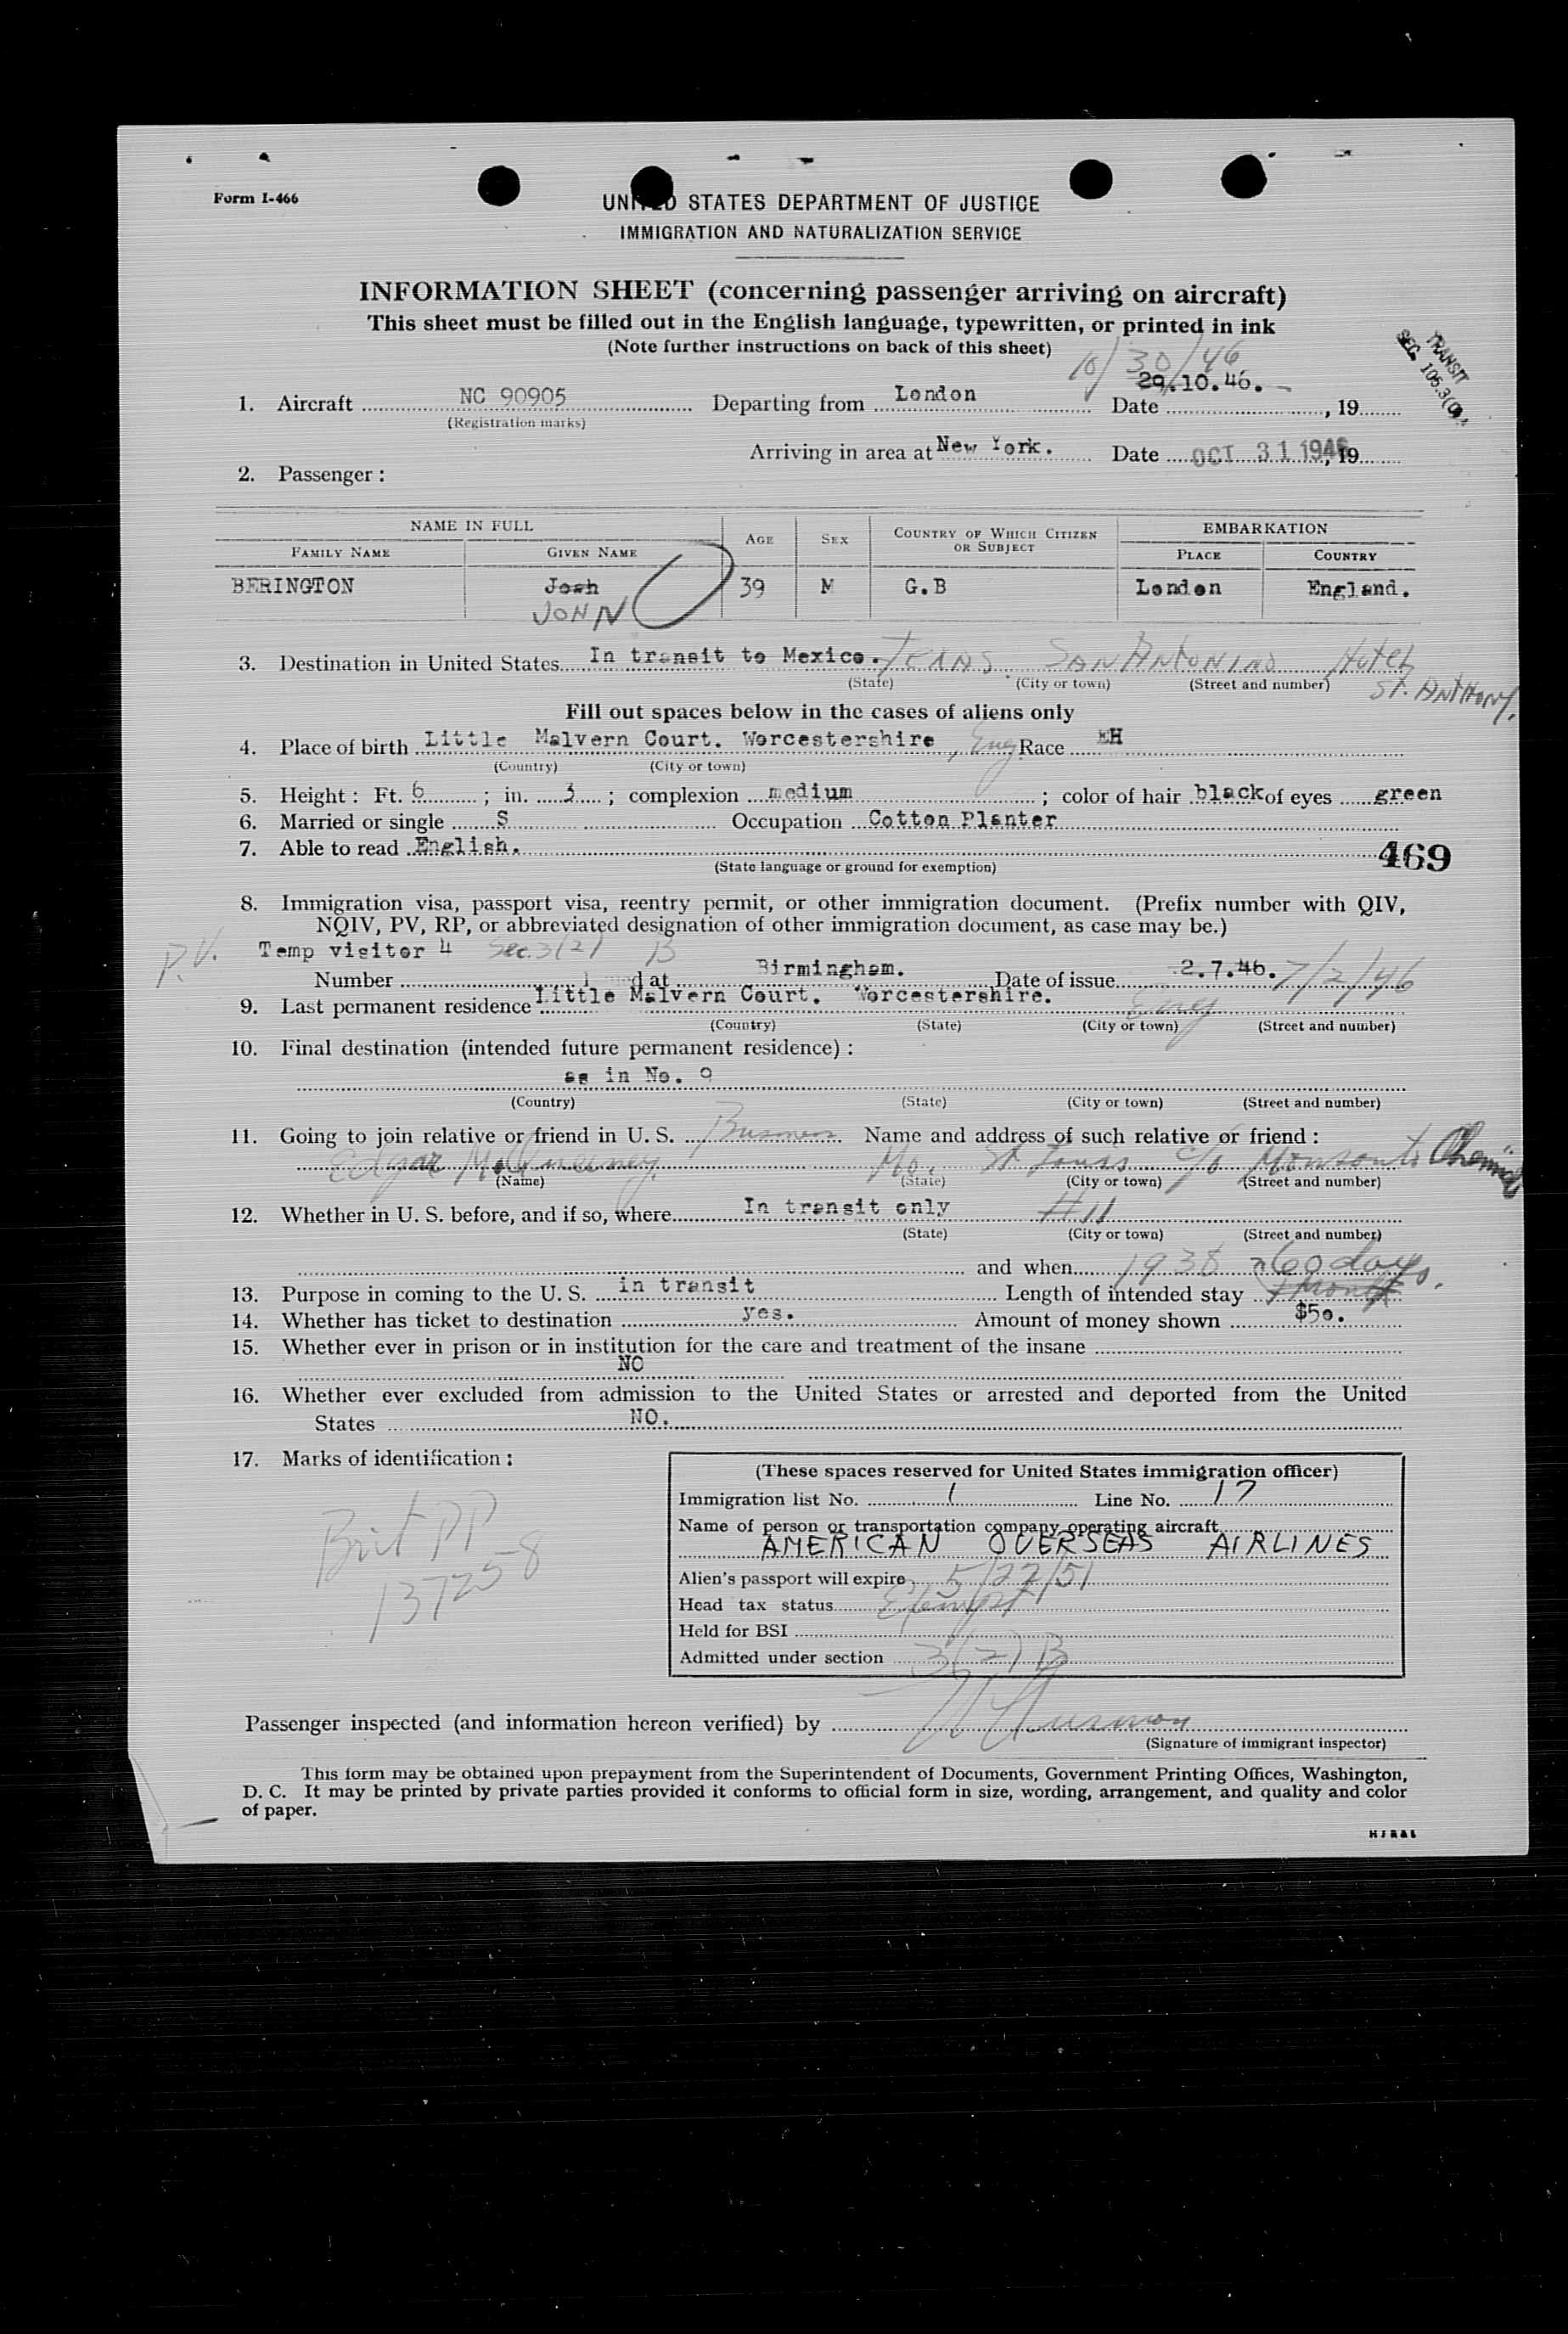 Form I-466
UNITED STATES DEPARTMENT OF JUSTICE
IMMIGRATION AND NATURALIZATION SERVICE
INFORMATION SHEET (concerning passenger arriving on aircraft)
This sheet must be filled out in the English language, typewritten, or printed in ink
(Note further instructions on back of this sheet)
TRANSIT
SEC. 106.3(
10/30/46
1. Aircraft NC 90905 Departing from London Date 29.10.46. , 19
(Registration marks)
Arriving in area at New York. Date OCT 31 1946, 19
2. Passenger :
NAME IN FULL AGE SEX COUNTRY OF WHICH CITIZEN OR SUBJECT EMBARKATION
FAMILY NAME GIVEN NAME PLACE COUNTRY
BERINGTON Josh 39 M G.B London England.
JOHN
3. Destination in United States In transit to Mexico. TEXAS SAN ANTONINO Hotel
(State) (City or town) (Street and number) ST. ANTHONY.
Fill out spaces below in the cases of aliens only
4. Place of birth Little Malvern Court. Worcestershire, Eng Race EH
(Country) (City or town)
5. Height : Ft. 6 ; in. 3 ; complexion medium ; color of hair black of eyes green
6. Married or single S Occupation Cotton Planter
7. Able to read English.
(State language or ground for exemption)
469
8. Immigration visa, passport visa, reentry permit, or other immigration document. (Prefix number with QIV,
NQIV, PV, RP, or abbreviated designation of other immigration document, as case may be.)
P.V. Temp visitor 4 Sec. 3(2) B
Number at Birmingham. Date of issue 2.7.46. 7/2/46
9. Last permanent residence Little Malvern Court. Worcestershire. Eng
(Country) (State) (City or town) (Street and number)
10. Final destination (intended future permanent residence) :
as in No. 9
(Country) (State) (City or town) (Street and number)
11. Going to join relative or friend in U. S. Business Name and address of such relative or friend :
Edgar Mo. St Louis c/o Monsonto Chemical
(Name) (State) (City or town) (Street and number)
12. Whether in U. S. before, and if so, where In transit only
(State) (City or town) (Street and number)
and when 1938 60 days.
13. Purpose in coming to the U. S. in transit Length of intended stay 1 Month
14. Whether has ticket to destination yes. Amount of money shown $50.
15. Whether ever in prison or in institution for the care and treatment of the insane
NO
16. Whether ever excluded from admission to the United States or arrested and deported from the United
States NO.
17. Marks of identification :
Brit PP
137258
(These spaces reserved for United States immigration officer)
Immigration list No. 1 Line No. 17
Name of person or transportation company operating aircraft
AMERICAN OVERSEAS AIRLINES
Alien's passport will expire 5/22/51
Head tax status Exempt
Held for BSI
Admitted under section 3(2) B
Passenger inspected (and information hereon verified) by
(Signature of immigrant inspector)
This form may be obtained upon prepayment from the Superintendent of Documents, Government Printing Offices, Washington,
D. C. It may be printed by private parties provided it conforms to official form in size, wording, arrangement, and quality and color
of paper.